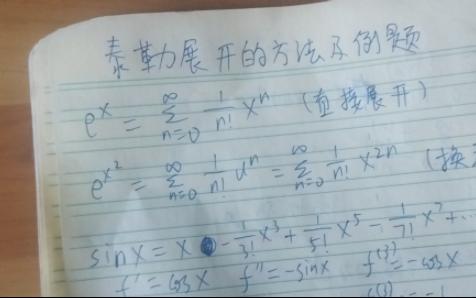 泰勒展开的方法及例题
e^x = ∑_{n=0}^{∞} 1/n! x^n (直接展开)
e^{x^2} = ∑_{n=0}^{∞} 1/n! u^n = ∑_{n=0}^{∞} 1/n! x^{2n} (换
sinx = x - 1/3! x^3 + 1/5! x^5 - 1/7! x^7 +
f' = cosx f'' = -sinx f^{(3)} = -cosx